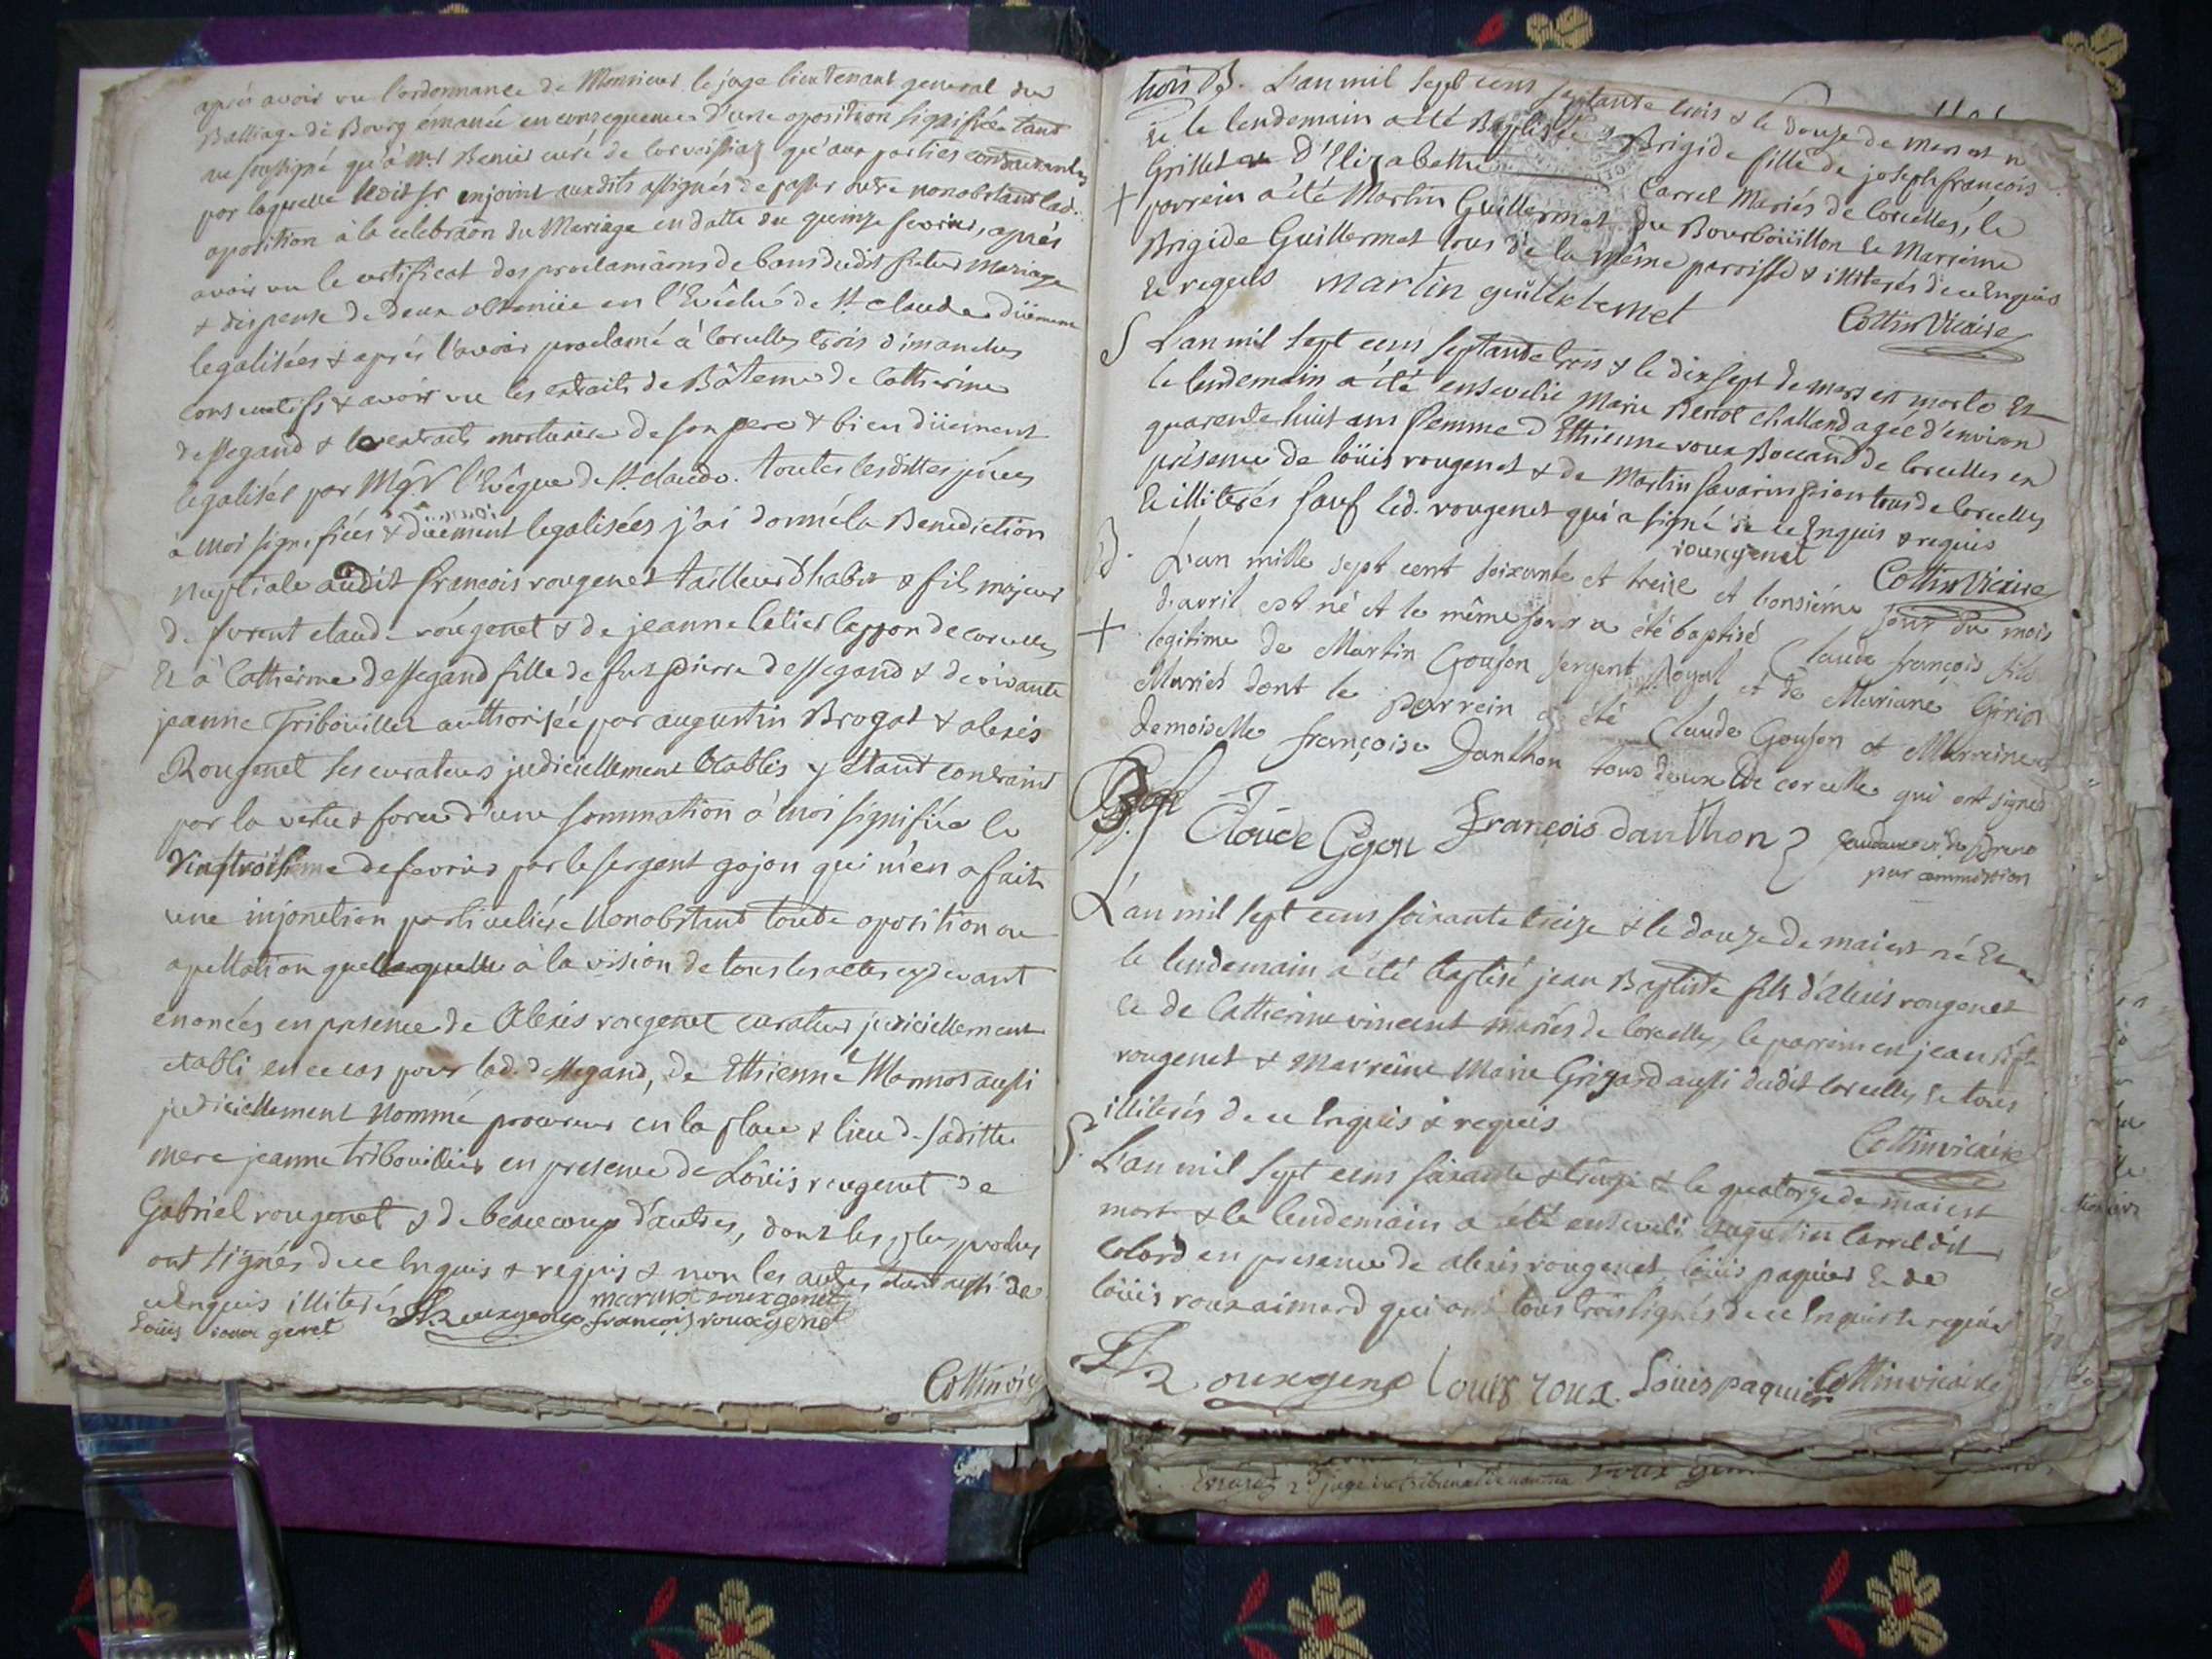 après avoir vu l'ordonnance de Monsieur le juge lieutenant general du
Balliage de Bourg émanée en consequence d'une oposition signifiée tant
au soussigné qu'à Mr Benier curé de qu'aux parties contractantes
par laquelle ledit Sr enjoint auxdits assignés de passer outre nonobstant lad.
oposition à la celebraõn du Mariage en datte du quinze fevrier, après
avoir vu le certificat des proclamãons de bans dudit futur Mariage
& dispense de deux obtenüe en l'Evêché de St claude düement
legalisées & après l'avoir proclamé à corcelles trois dimanches
consecutifs & avoir vu les extraits de Bâteme de Catherine
dessegand & extraits mortuaire de son pere & bien düement
legalisés par Mgr l'Evêque de St claude. toutes lesdittes pièces
à moi signifiées & düement legalisées j'ai donné la Benediction
nuptiale audit françois rougenet tailleur d'habit & fils majeur
de furent claude rougenet & de jeanne de corcelles
Et à Catherine dessegand fille de fut pierre dessegand & de vivante
jeanne Tribouillet authorisée par augustin Brogat & alexis
Rougenet ses curateurs judiciellement etablis y étant contraint
par la vertu & force d'une sommation à moi signifiée le
vingtroisième de fevrier par le sergent gojon qui m'en a fait
une injonction particulière Nonobstant toute oposition ou
apellation quellequelle à la vision de tous les actes cydevant
enoncés en presence de Alexis rougenet curateur judiciellement
etabli en ce cas pour lad. dessegand, de Etthienne Monnot aussi
judiciellement Nommé procureur en la place & lieu de saditte
mere jeanne tribouillier en presence de Loüis rougenet de
Gabriel rougenet & de beaucoup d'autres, dont les plus proches
ont signés de ce Enquis & requis & non les autres aussi de
ce Enquis illiterés marux rouxgenet
Loüis roux genet françois rouxgenet
Cottin vic
trois B. L'an mil sept cens septante trois & le douze de mars est né
Et le lendemain a été Baptisée Brigide fille de joseph françois
Grillet d'Elizabette Carrel Mariés de Corcelles, le
+ parrein a été Martin Guillermet du Bourboüillon Et Mareine
Brigide Guillermet tous de la même parroisse & illiterés de ce Enquis
et requis martin
Cottin Vicaire
S L'an mil sept cens septante trois & le dixsept de mars est morte Et
le lendemain a été ensevelie Marie Benoit challand agée d'environ
quarante huit ans femme d'Etthienne roux Boccand de corcelles en
présence de loüis rougenet & de Martin savarin pion tous de Corcelles
Et illiterés sauf led. rougenet qui a signé de ce Enquis & requis
rouxgenet
Cottin Vicaire
B. L'an mille sept cent soixante et treize et jour du mois
d'avril est né et le même jour a été baptisé Claude françois fils
+ legitime de Martin Goujon sergent Royal et de Mariane
Mariés dont le parrein a été Claude Goujon et Marreine
demoiselle françoise Danthon tous deux de corcelle qui ont signés
Claude françois danthon
par commission
L'an mil sept cens soixante treize & le douze de mai est né Et
le lendemain a été baptisé jean Baptiste fils d'Alexis rougenet
Et de Catherine vincent mariés de Corcelles, le parein est jean Bpte
rougenet & Marreine Marie aussi dudit corcelles Et tous
illiterés de ce Enquis & requis
Cottin vicaire
S. L'an mil sept cens soixante & treize & le quatorze de mai est
mort & le lendemain a été enseveli augustin Carrel dit
Colard en presence de alexis rougenet, loüis paquier & de
loüis roux aimard qui ont tous trois signés de ce Enquis & requis
A Rouxgenet Louis roux. Loüis paquier Cottin vicaire